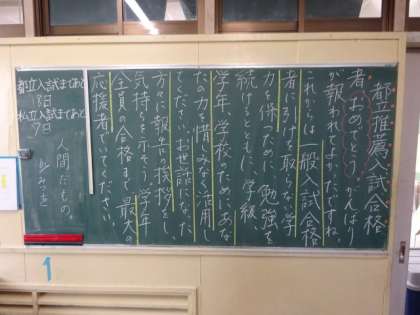 都立推薦入試合格
者「おめでとう」がんばり
が報われてよかったですね。
これからは一般入試合格
者に引けを取らない学
力を保つために勉強を
続けるとともに、学級
学年、学校のためにあな
たの力を惜しみなく活用し
てください。お世話になった
方々に報告の挨拶をし、
気持ちを示そう。学年
全員の合格まで、最大の
応援者でいてください。
人間だもの。
みつを
都立入試まであと
18日
私立入試まであと
9日
1